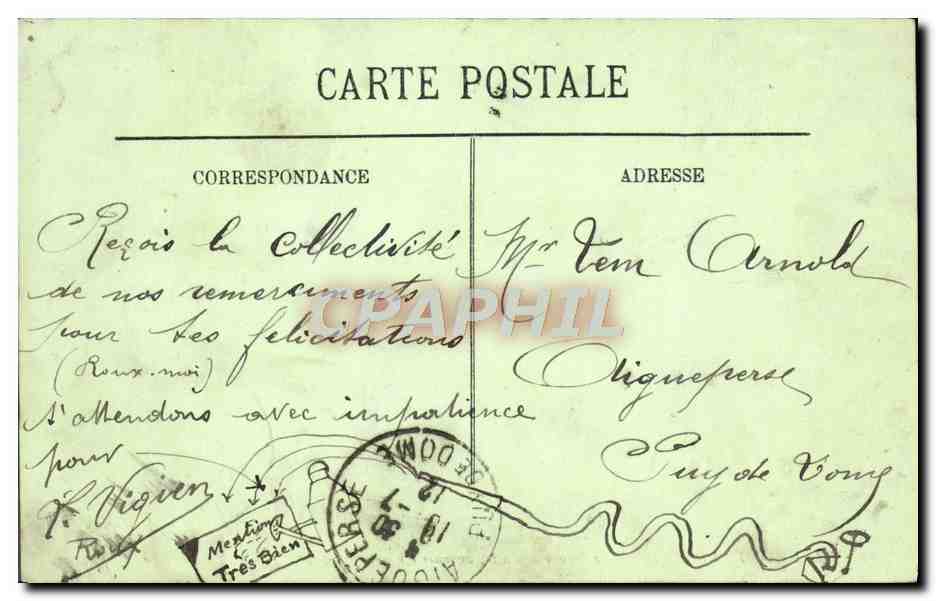 CARTE POSTALE
CORRESPONDANCE
ADRESSE
Reçois la collectivité
de nos remerciments
pour tes felicitations
(Roux-moi)
t'attendons avec impatience
pour
Vigien
Roux
Mention
Très Bien
Mr Tem Arnold
Aigueperse
Puy de Dome
AIGUEPERSE PUY-DE-DOME
30 -7
12
CPAPHIL